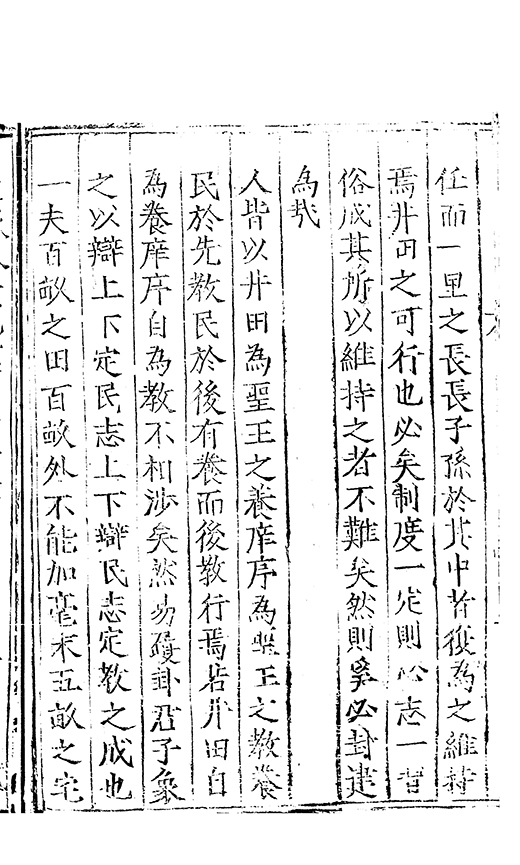 任而一里之長長子孫於其中者復為之維持
焉井田之可行也必矣制度一定則心志一習
俗成其所以維持之者不難矣然則奚必封建
為哉
人皆以井田為聖王之養庠序為聖王之教養
民於先教民於後有養而後教行焉若井田自
為養庠序自為教不相涉矣然易履卦君子象
之以辯上下定民志上下辯民志定教之成也
一夫百畝之田百畝外不能加毫末五畝之宅